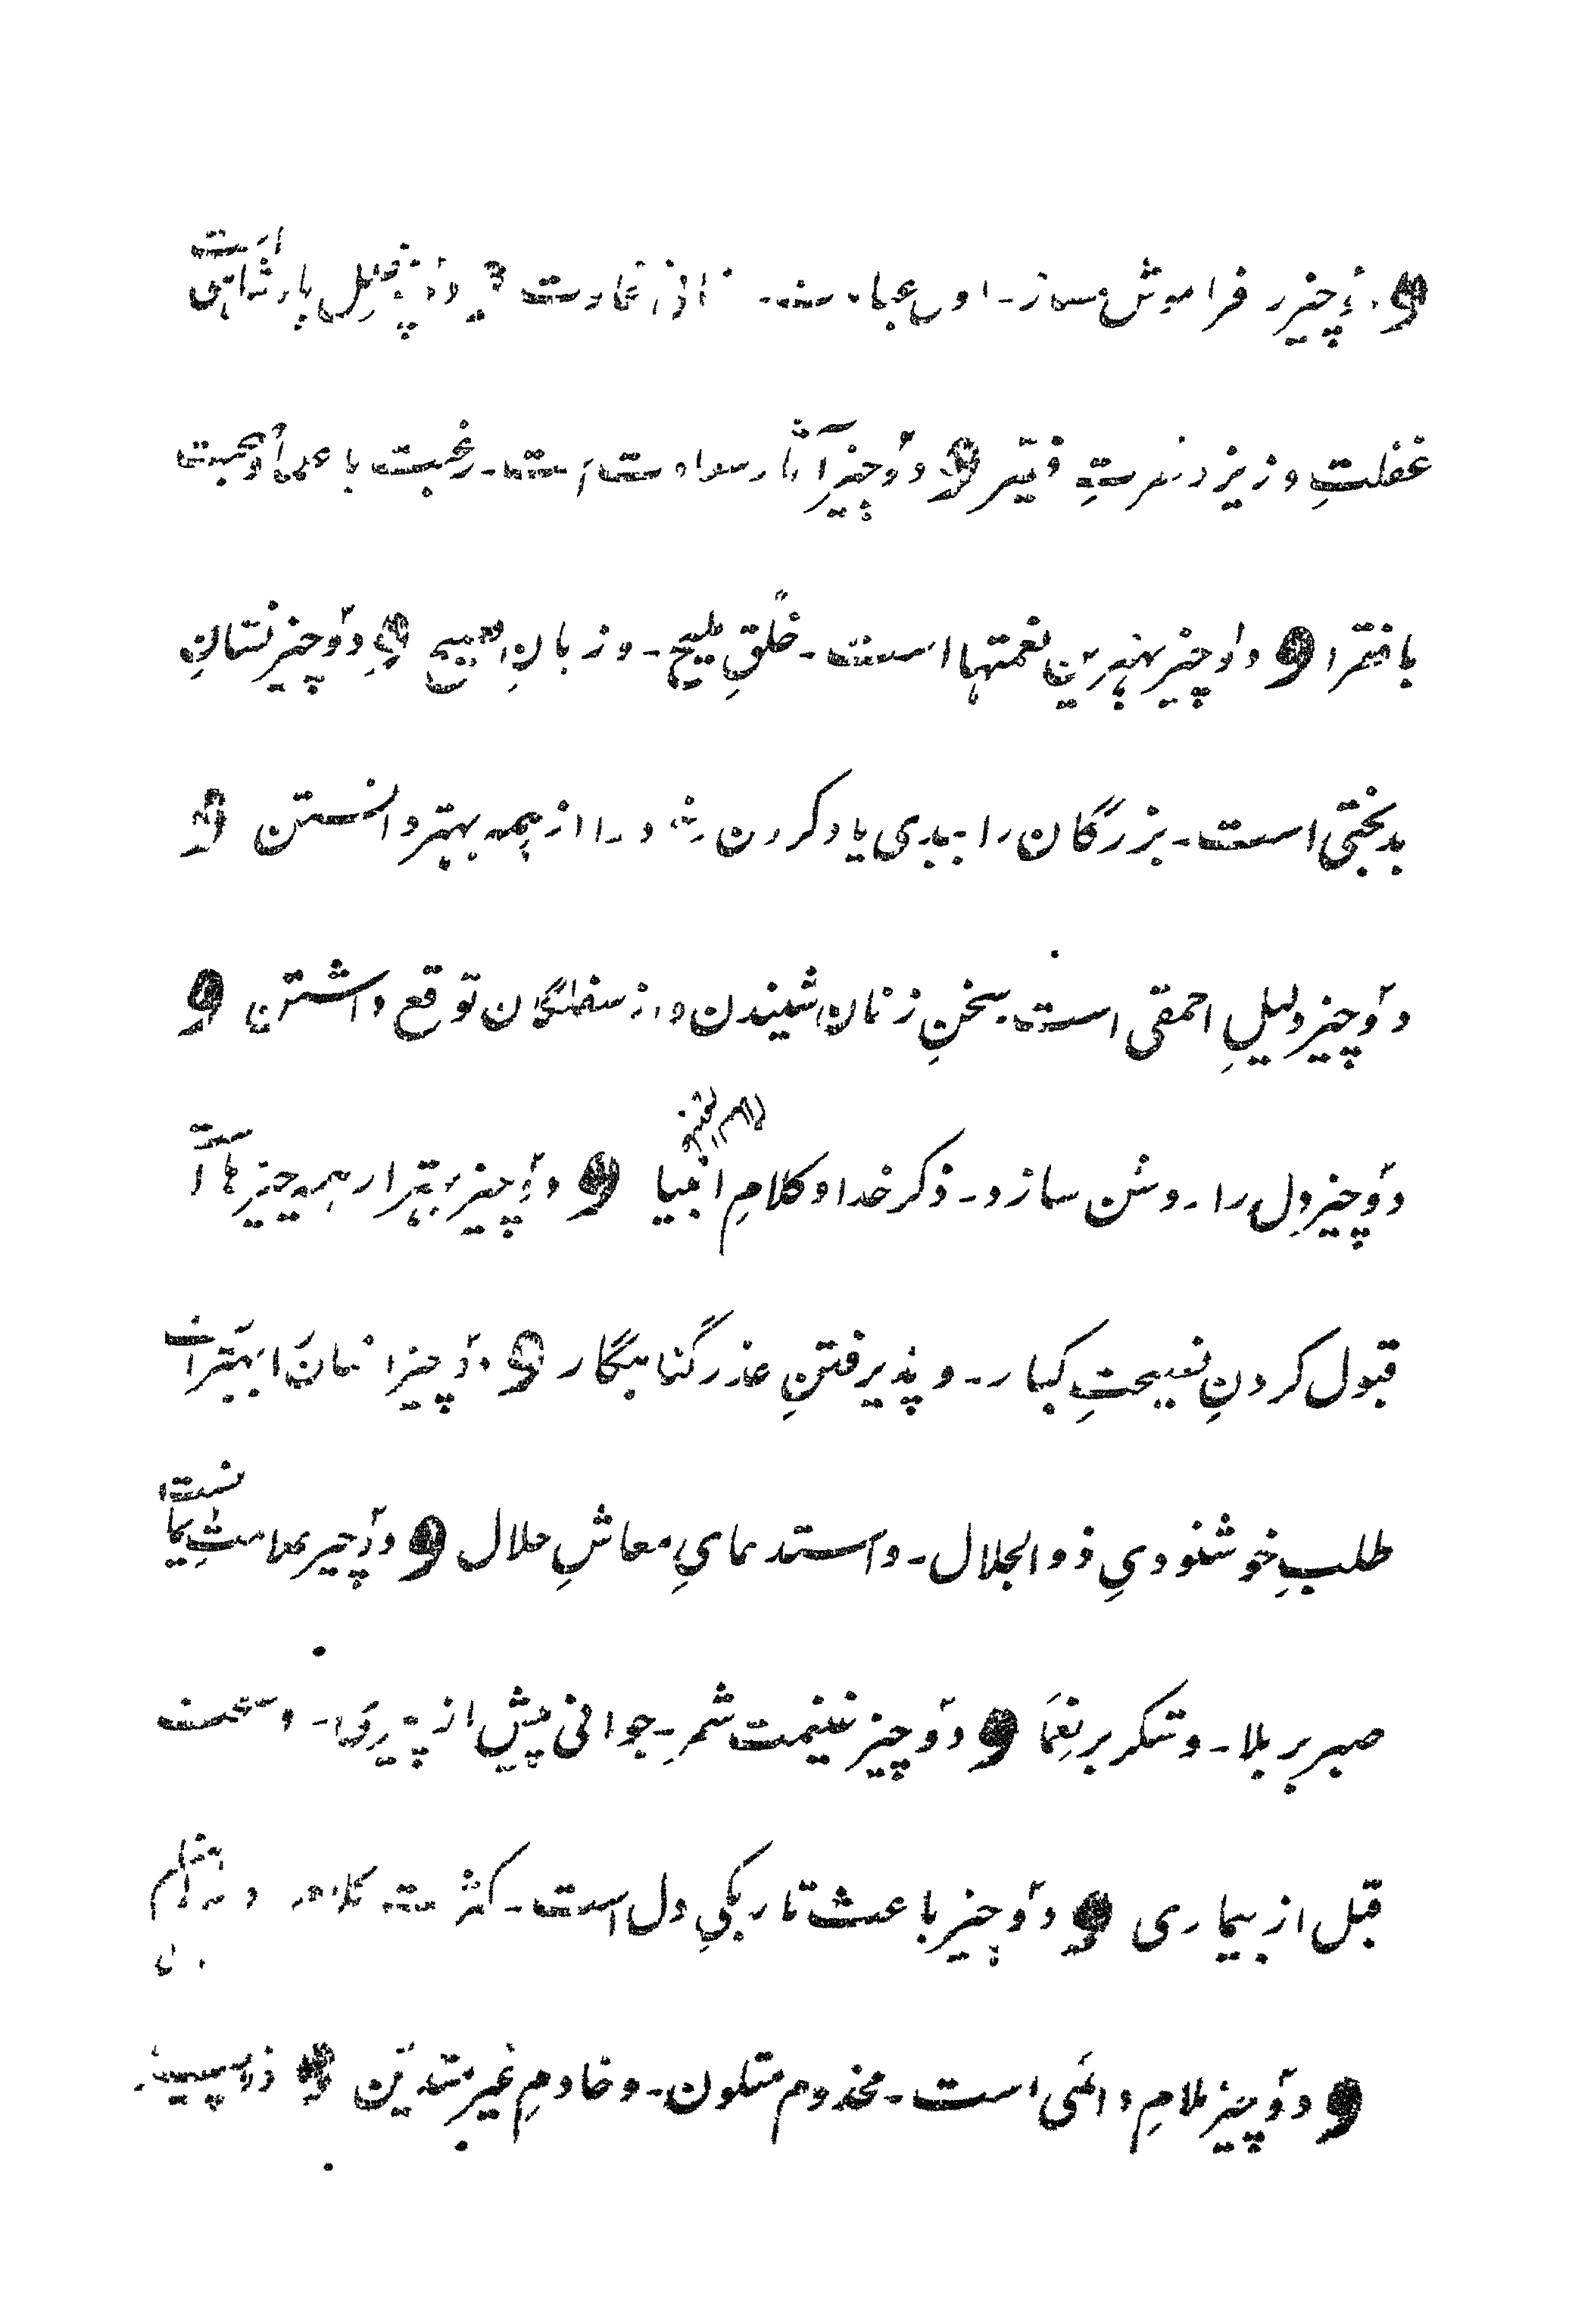 دو چیز فراموش مساز۔ اول عبادت۔ دو چیز مخل پادشاهی است
غفلتِ وزیر و نفرتِ فقیر و دو چیز آثار سعادت است۔ رغبت با علما و محبت
با فقرا و دو چیز بهترین نعمتها است۔ خُلقِ ملیح۔ و زبانِ فصیح و دو چیز نشانِ
بدبختی است۔ بزرگان را ببدی یاد کردن و خود را از همه بهتر دانستن و
دو چیز دلیلِ احمقی است سخنِ زنان شنیدن و از سفلگان توقع داشتن و
دو چیز دل را روشن سازد۔ ذکر خدا و کلامِ انبیا و دو چیز بهتر از همه چیزها است
قبول کردنِ نصیحتِ کبار۔ و پذیرفتنِ عذر گناهگار و دو چیز انسان را بهتر است
طلبِ خوشنودیِ ذوالجلال۔ و استدعایِ معاشِ حلال و دو چیز علامتِ ایمانست
صبر بر بلا۔ و شکر بر نعما و دو چیز غنیمت شمر۔ جوانی پیش از پیری۔ و صحت
قبل از بیماری و دو چیز باعث تاریکیِ دل است۔ کثرت
و دو چیز ملامِ دائمی است۔ مخدوم متلون۔ و خادمِ غیر متدین و